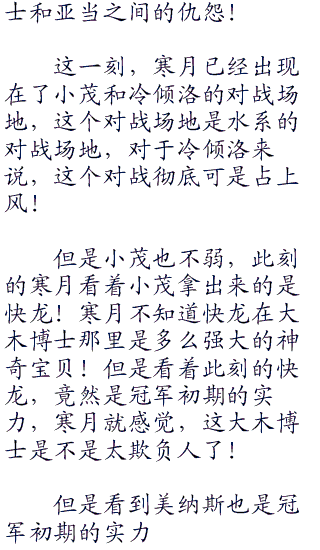 士和亚当之间的仇怨！
这一刻，寒月已经出现
在了小茂和冷倾洛的对战场
地，这个对战场地是水系的
对战场地，对于冷倾洛来
说，这个对战彻底可是占上
风！
但是小茂也不弱，此刻
的寒月看着小茂拿出来的是
快龙！寒月不知道快龙在大
木博士那里是多么强大的神
奇宝贝！但是看着此刻的快
龙，竟然是冠军初期的实
力，寒月就感觉，这大木博
士是不是太欺负人了！
但是看到美纳斯也是冠
军初期的实力